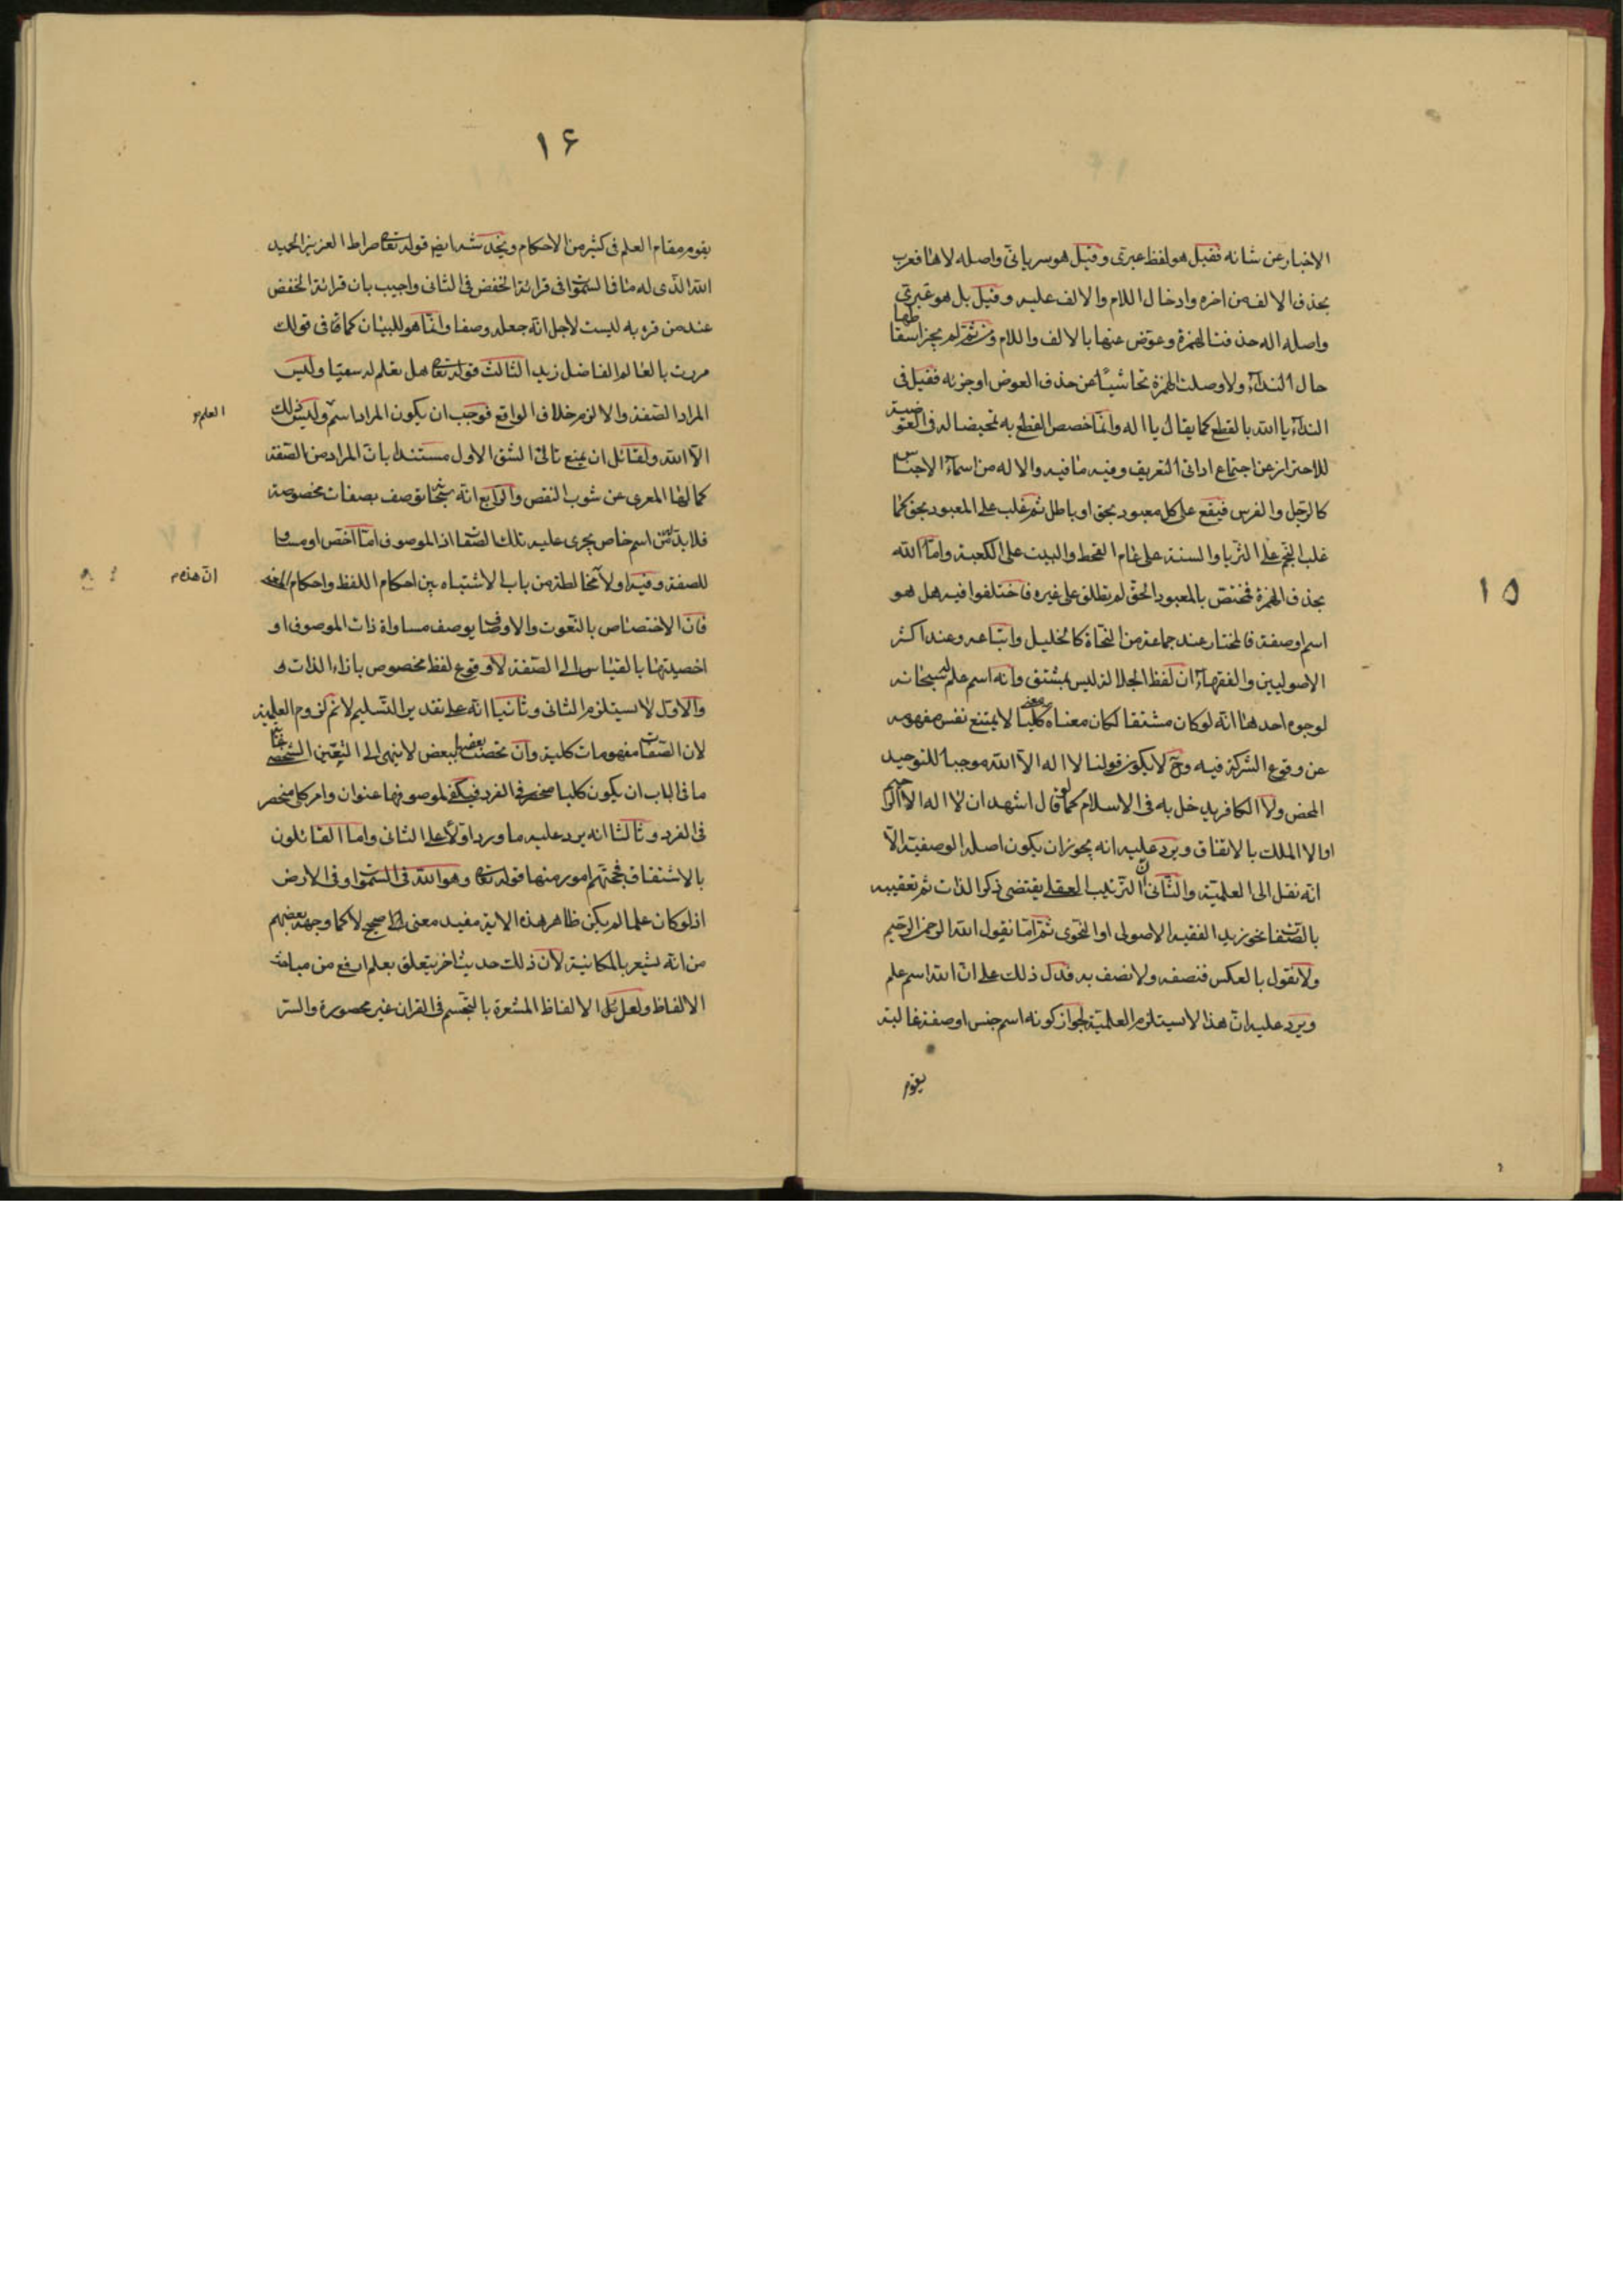 ١٥
الاخبار عن شانه فقيل هو لفظ عبرى وقيل هو سريانى واصله لاها فعرب
بحذف الالف من اخره وادخال اللام والالف عليه وقيل بل هو عربى
واصله اله حذفت الهمزة وعوض عنها بالالف واللام ومن ثم لم يجز اسقاطها
حال النداء ولا وصلت الهمزة تحاشيا عن حذف العوض او جزئه فقيل فى
النداء يا الله بالقطع كما يقال يا اله وانما خصص القطع به تمحيضا له فى العوضية
للاحتراز عن اجتماع اداتى التعريف وفيه ما فيه والاله من اسماء الاجناس
كالرجل والفرس فيقع على كل معبود بحق او باطل ثم غلب على المعبود بحق كما
غلب النجم على الثريا والسنة على عام القحط والبيت على الكعبة واما الله
بحذف الهمزة فمختص بالمعبود الحق لم يطلق على غيره فاختلفوا فيه هل هو
اسم او صفة فالمختار عند جماعة من النحاة كالخليل واتباعه وعند اكثر
الاصوليين والفقهاء ان لفظ الجلالة ليس بمشتق وانه اسم علم له سبحانه
لوجوه احدها انه لو كان مشتقا لكان معناه معنى كليا لا يمتنع نفس مفهومه
عن وقوع الشركة فيه وح لا يكون قولنا لا اله الا الله موجبا للتوحيد
المحض ولا الكافر يدخل به فى الاسلام كما لو قال اشهد ان لا اله الا الرحيم
او الا الملك بالاتفاق ويرد عليه انه يجوز ان يكون اصله الوصفية الا
انه نقل الى العلمية والثانى ان الترتيب العقلى يقتضى ذكر الذات ثم تعقيبه
بالصفات نحو زيد الفقيه الاصولى او النحوى ثم انا نقول الله الرحمن الرحيم
ولا نقول بالعكس فنصفه ولا نصف به فدل ذلك على ان الله اسم علم
ويرد عليه ان هذا لا يستلزم العلمية لجواز كونه اسم جنس او صفة غالبة
يقوم
١٦
يقوم مقام العلم فى كثير من الاحكام ويخدشه ايضا قوله تعالى صراط العزيز الحميد
الله الذى له ما فى السموات فى قرائة الخفض فى الثانى واجيب بان قرائة الخفض
عند من قرء به ليست لاجل انه جعله وصفا وانما هو للبيان كما فى قولك
مررت بالعالم الفاضل زيد الثالث قوله تعالى هل تعلم له سميا وليس
المراد الصفة والا لزم خلاف الواقع فوجب ان يكون المراد اسم العلم وليس ذلك
الا الله ولقائل ان يمنع تالى الشق الاول مستندا بان المراد من الصفة
كمالها المعرى عن شوب النقص والرابع انه سبحانه يوصف بصفات مخصوصة
فلا بد من اسم خاص يجرى عليه تلك الصفات اذ الموصوف اما اخص او مساو
للصفة وفيه اولا ان هذه مغالطة من باب الاشتباه بين احكام اللفظ واحكام المعنى
فان الاختصاص بالنعوت والاوصاف يوصف مساواة ذات الموصوف او
اخصيتها بالقياس الى الصفة لا وقوع لفظ مخصوص بازاء الذات
والاول لا يستلزم الثانى وثانيا انه على تقدير التسليم لانم لزوم العلمية
لان الصفات مفهومات كلية وان تخصص بعضها ببعض لا ينتهى الى التعين الشخصى غاية
ما فى الباب ان يكون كليا منحصر فى الفرد فيكفى لموصوفها عنوان وامر كلى منحصر
فى الفرد وثالثا انه يرد عليه ما ورد اولا على الثانى واما القائلون
بالاشتقاق فحجتهم امور منها قوله تعالى وهو الله فى السموات وفى الارض
اذ لو كان علما لم يكن ظاهر هذه الاية مفيد معنى صحيح لا كما وجهه بعضهم
من انه يشعر بالمكانية لان ذلك حديث اخر يتعلق بعلم ارفع من مباحث
الالفاظ ولعل الالفاظ المشعرة بالتجسم فى القران غير محصورة والسر
العلم
ان هذه